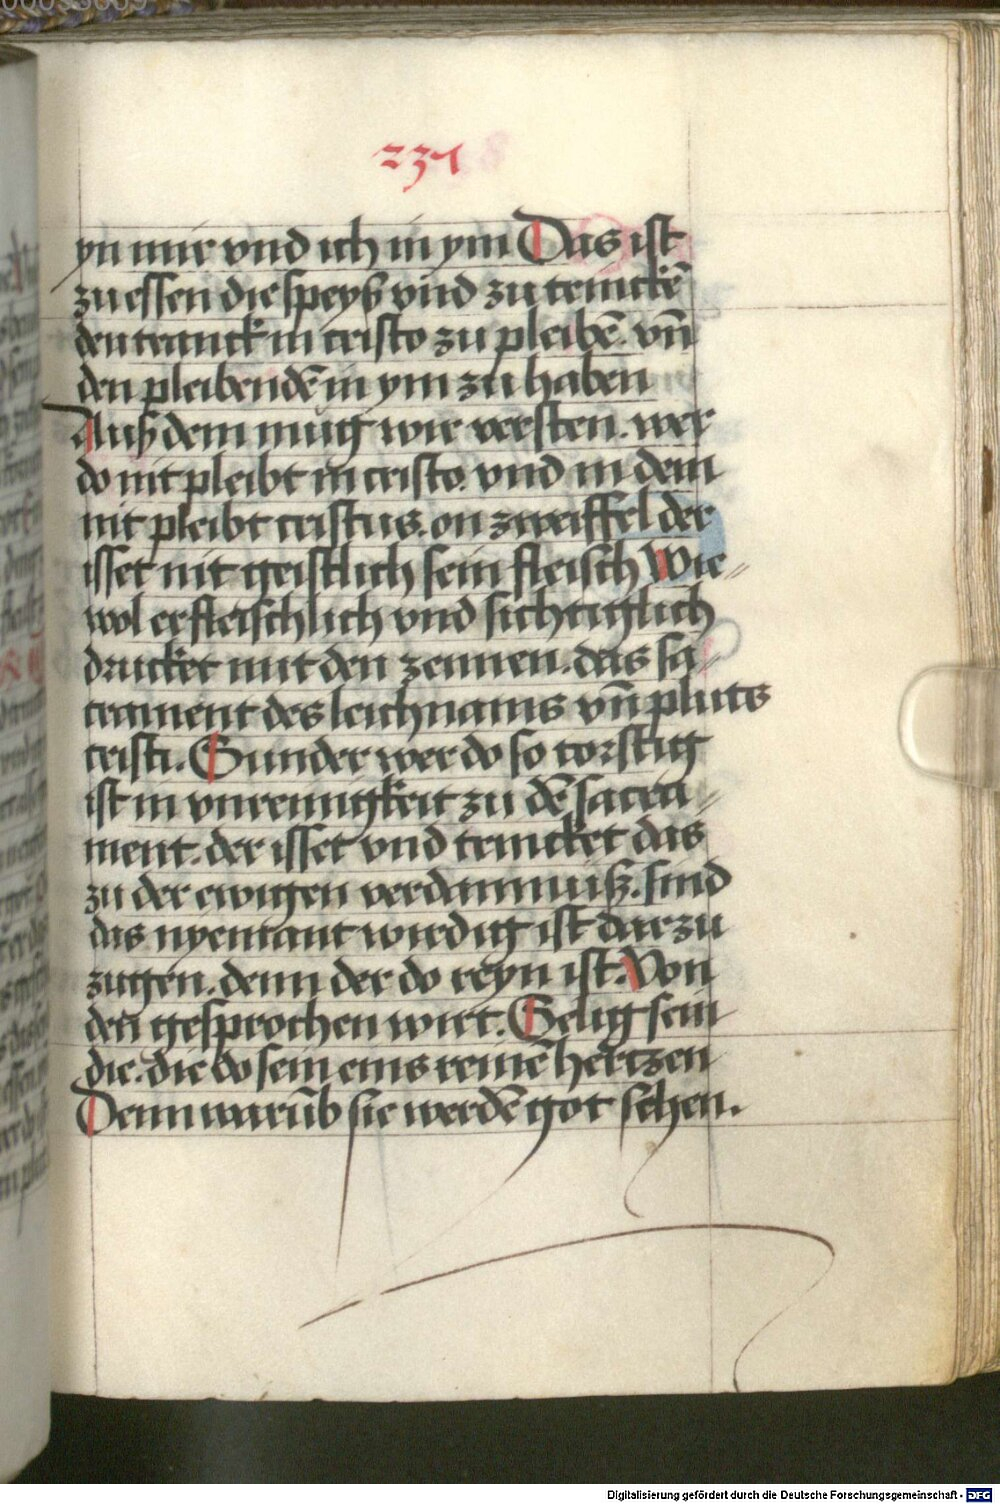 231
yn mir vnd ich in ym Das ist
zu essen die speyß vnd zu trincke͂
den tranck in cristo zu pleibe͂. vn͂
den pleibende͂ in ym zu haben
Auß dem mug wir versten. wer
do nit pleibt in cristo. vnd in dem
nit pleibt cristus. on zweiffel der
isset nit geistlich sein fleisch Wie-
wol er fleischlich vnd sichtiglich
drucket mit den zennen. das sa-
crament des leichnams vn͂ pluts
cristi. Sunder wer do so torstig
ist in vnreinigkeit zu de͂ sacra-
ment. der isset vnd trincket das
zu der ewigen verdamnuß. sind
das nyemant wirdig ist dar zu
zugen. denn der do reyn ist. Von
den gesprochen wirt. Selig sein
die. die do sein eins reine͂ hertzen
Denn waru͂b sie werde͂ got sehen.
Digitalisierung gefördert durch die Deutsche Forschungsgemeinschaft - DFG